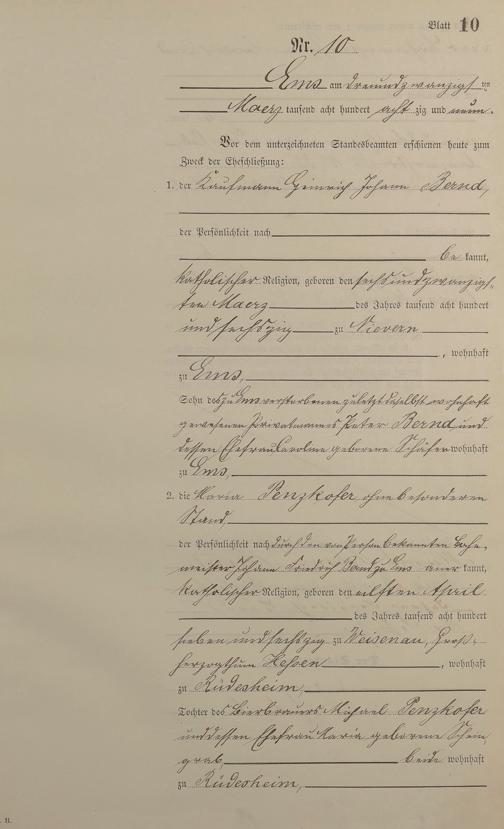 Blatt 10
Nr. 10
Ems am dreiundzwanzigsten
Maerz tausend acht hundert achtzig und neun.
Vor dem unterzeichneten Standesbeamten erschienen heute zum
Zweck der Eheschließung:
1. der Kaufmann Heinrich Johann Bernd,
der Persönlichkeit nach
be kannt,
katholischer Religion, geboren den sechsundzwanzigs-
ten Maerz des Jahres tausend acht hundert
und sechszig zu Nievern,
, wohnhaft
zu Ems,
Sohn des zu Ems verstorbenen zuletzt daselbst wohnhaft
gewesenen Privatmannes Peter Bernd und
dessen Ehefrau Caroline geborene Schäfer wohnhaft
zu Ems,
2. die Maria Penzkofer ohne besonderen
Stand,
der Persönlichkeit nach durch den von Person bekannten
meister Johann Friedrich zu Ems aner kannt,
katholischer Religion, geboren den eilften April
des Jahres tausend acht hundert
sieben und sechszig zu Weisenau, Groß-
herzogthum Hessen, wohnhaft
zu Rüdesheim,
Tochter des Bierbrauers Michael Penzkofer
und dessen Ehefrau Maria geborene
grab, beide wohnhaft
zu Rüdesheim,
B.